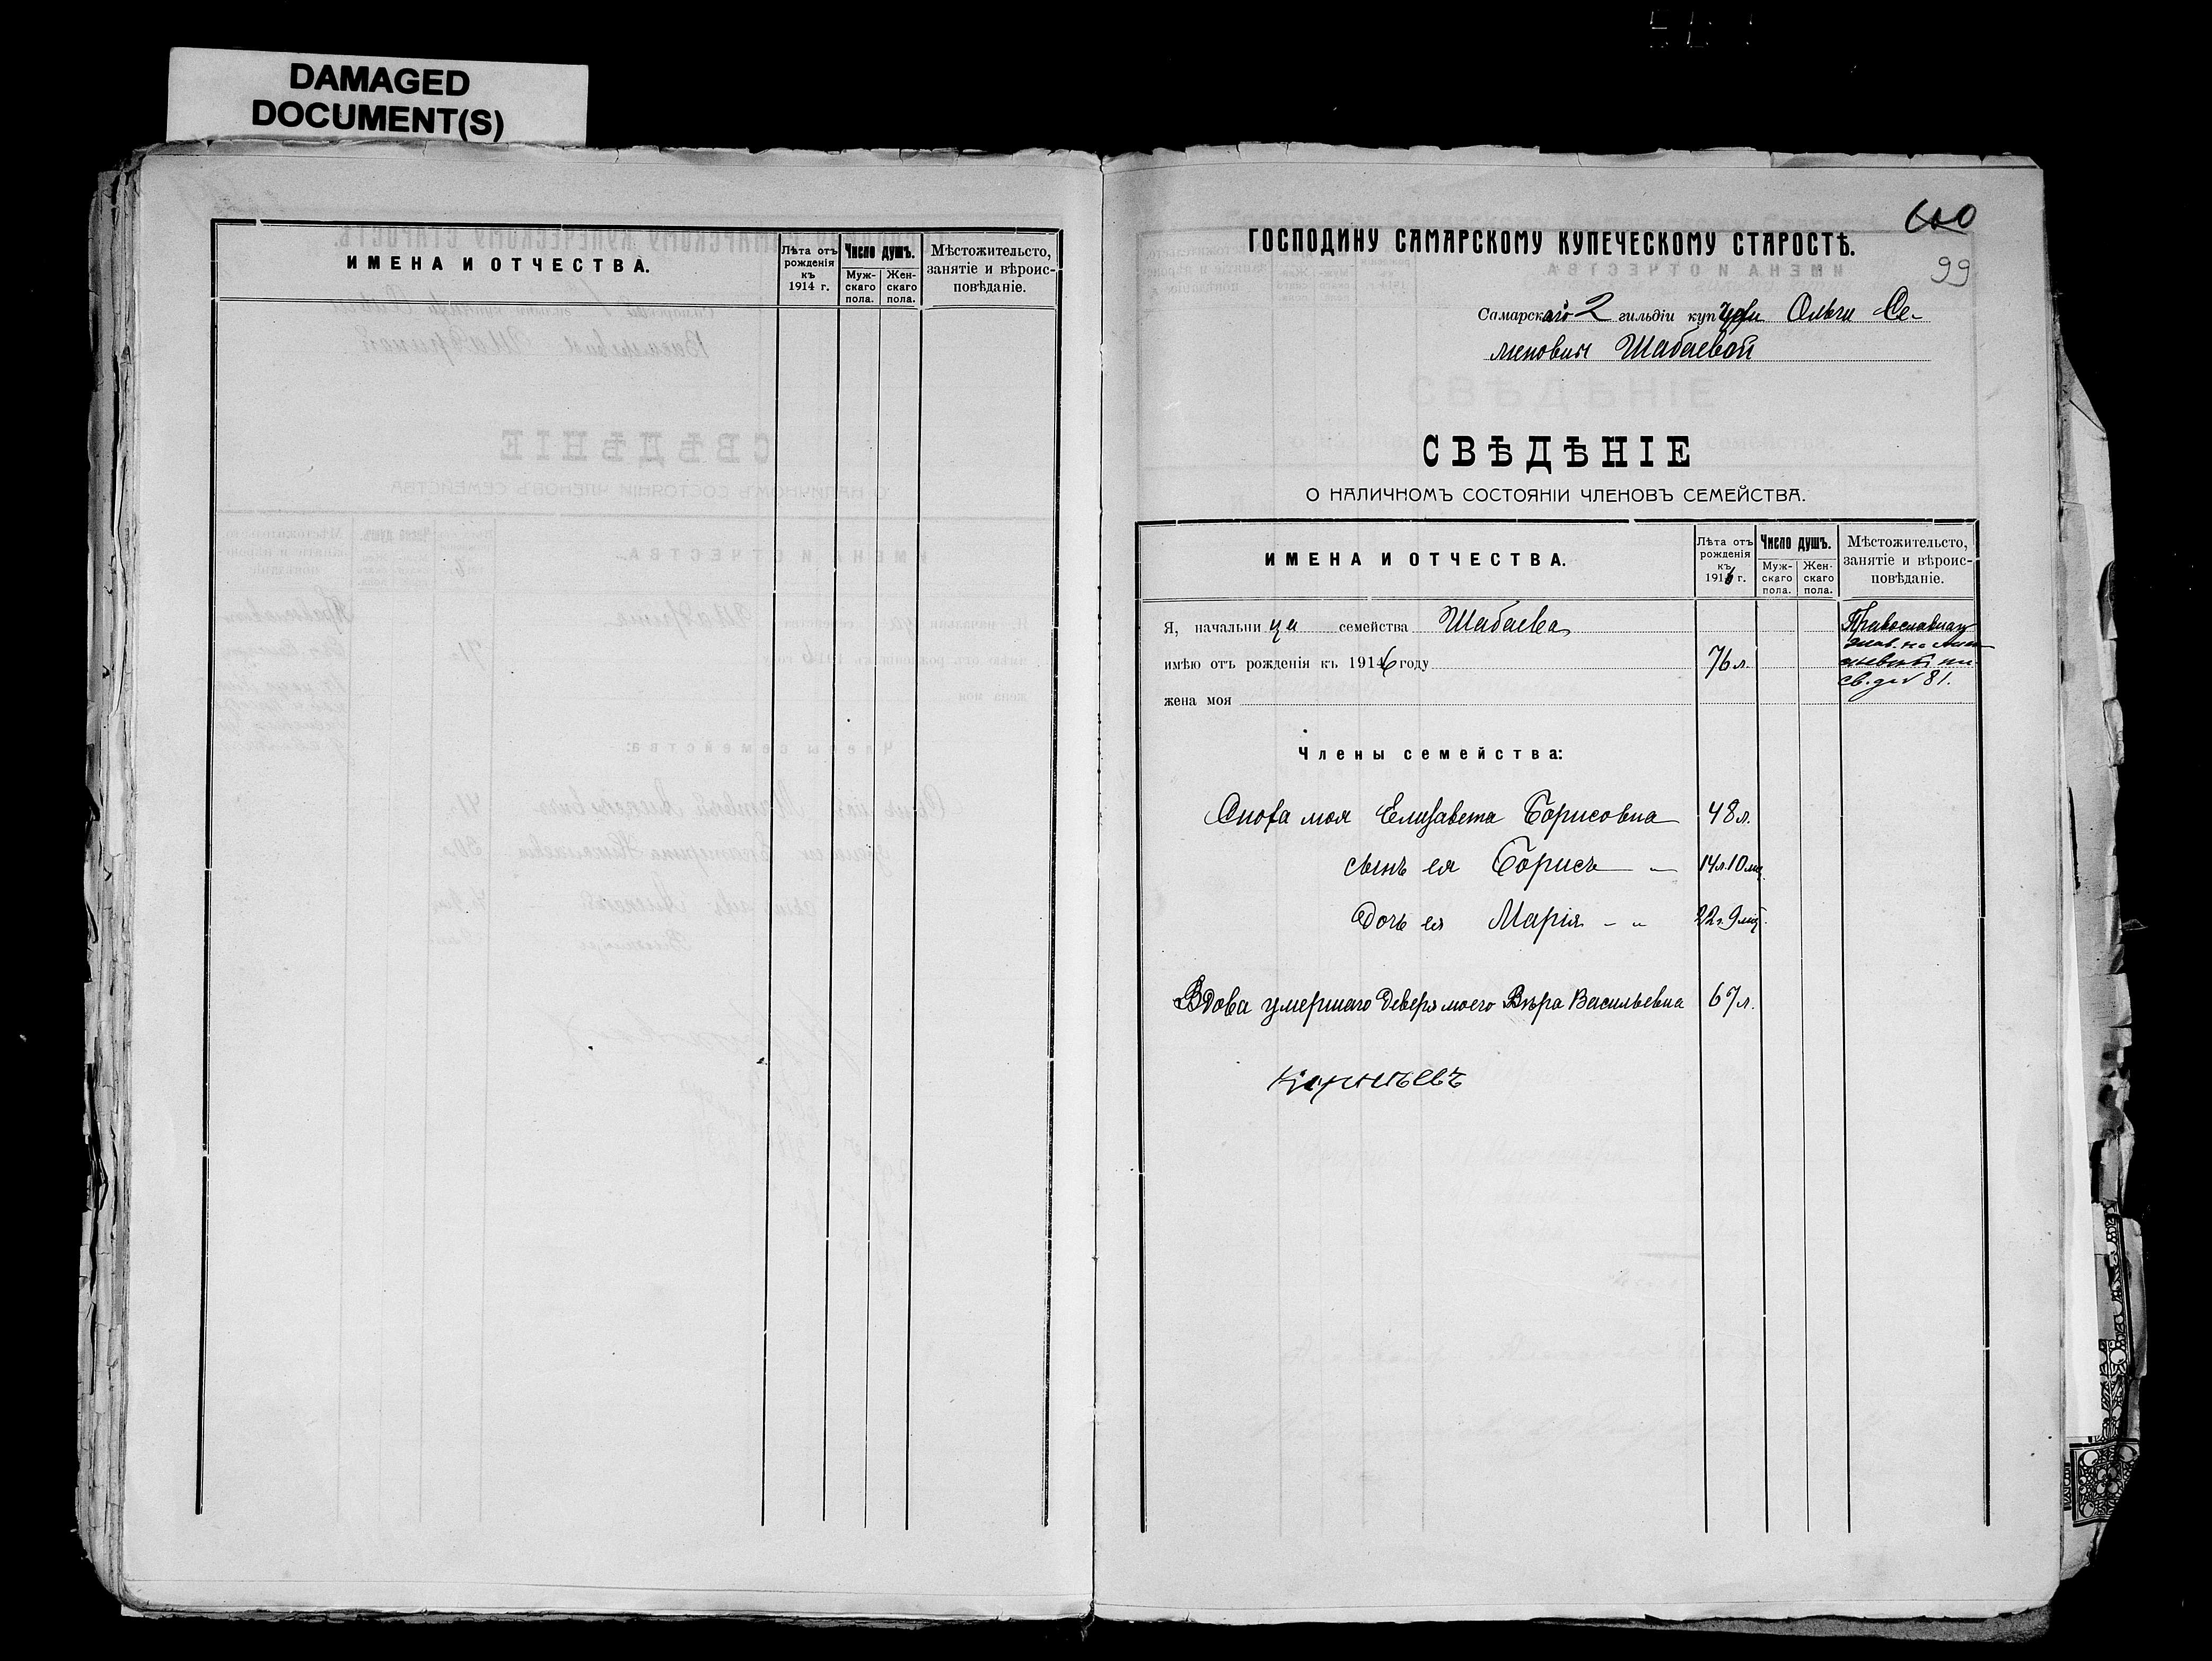 DAMAGED
DOCUMENT(S)
ИМЕНА И ОТЧЕСТВА.
Лѣта отъ рожденія къ 1914 г.
Число душъ.
Муж-скаго пола.
Жен-скаго пола.
Мѣстожительсто, занятіе и вѣроис-повѣданіе.
100
99
ГОСПОДИНУ САМАРСКОМУ КУПЕЧЕСКОМУ СТАРОСТѢ.
Самарскаго 2 гильдіи куп Ольги Се-
меновны Шабаевой
СВѢДѢНІЕ
О НАЛИЧНОМЪ СОСТОЯНІИ ЧЛЕНОВЪ СЕМЕЙСТВА.
ИМЕНА И ОТЧЕСТВА.
Лѣта отъ рожденія къ 1916 г.
Число душъ.
Муж-скаго пола.
Жен-скаго пола.
Мѣстожительсто, занятіе и вѣроис-повѣданіе.
Я, начальница семейства Шабаева
имѣю отъ рожденія къ 1916 году 76 л.
жена моя
Православная
св. д № 81.
Члены семейства:
Сноха моя Елизавета Борисовна 48 л.
сынъ ея Борисъ — 14 л. 10 мц.
дочь ея Марія - „ 22 г. 9 мц.
Вдова умершаго деверя моего Вѣра Васильевна 67 л.